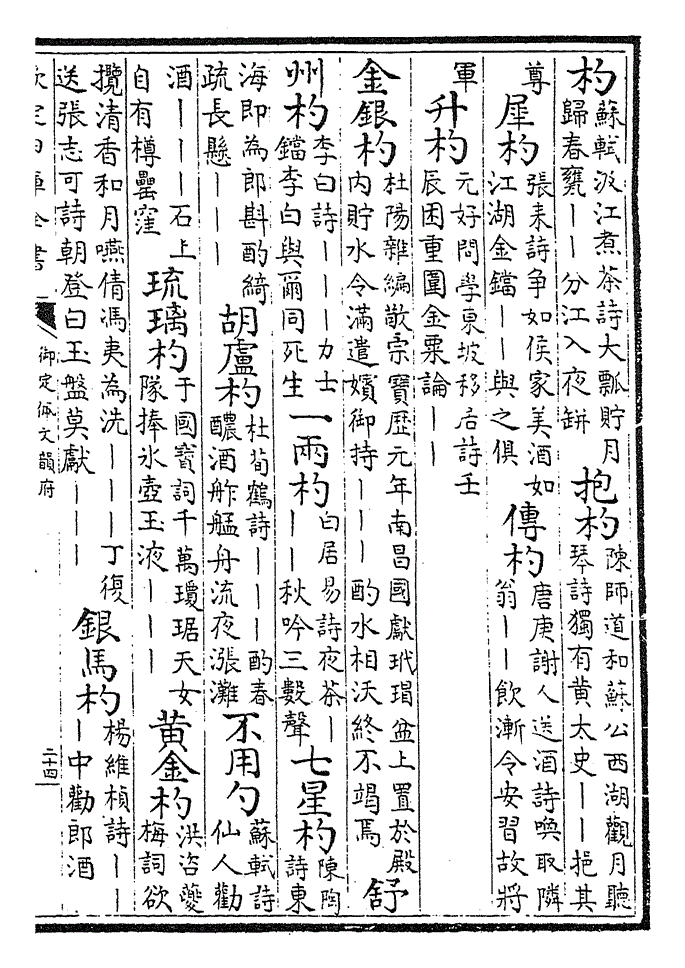 杓蘇軾汲江煮茶詩大瓢貯月歸春甕丨丨分江入夜缾抱杓陳師道和蘇公西湖觀月聽琴詩獨有黄太史丨丨挹其
尊犀杓張耒詩争如侯家美酒如江湖金鐺丨丨與之俱傳杓唐庚謝人送酒詩喚取隣翁丨丨飲漸令安習故將
軍升杓元好問學東坡移居詩壬辰困重圍金粟論丨丨
金銀杓杜陽雜編敬宗寶歷元年南昌國獻玳瑁盆上置於殿内貯水令滿遣嬪御持丨丨丨酌水相沃終不竭焉舒
州杓李白詩丨丨丨力士鐺李白與爾同死生一兩杓白居易詩夜茶丨丨丨秋吟三數聲七星杓陳陶詩東
海即為郎斟酌綺疏長懸丨丨丨胡盧杓杜荀鶴詩丨丨丨酌春醲酒舴艋舟流夜漲灘不用勺蘇軾詩仙人勸
酒丨丨丨石上自有樽罍窪琉璃杓于國寶詞千萬瓊琚天女隊捧氷壺玉液丨丨丨黄金杓洪咨夔梅詞欲
攬清香和月嚥倩馮夷為洗丨丨丨丁復送張志可詩朝登白玉盤莫獻丨丨丨銀馬杓楊維楨詩丨丨丨中勸郎酒
欽定四庫全書
御定佩文韻府
二十四